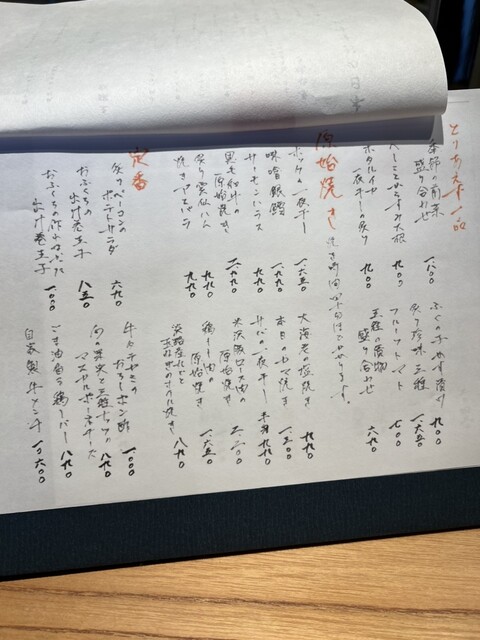 とりあえず一品
季節の前菜
盛り合わせ
一八〇〇
からすみ大根
九〇〇
ホタルイカ
一夜干しの炙り
九〇〇
ふぐの子ぬか漬け
九〇〇
炙り珍味三種
一六五〇
フルーツトマト
七〇〇
三種の漬物
盛り合わせ
六九〇
原始焼き
焼き時間四十分ほどかかります。
ホッケの一夜干し
一六五〇
味噌銀鱈
一九八〇
サーモンハラス
九九〇
黒毛和牛の
原始焼き
二九九〇
炙り雲仙ハム
九九〇
焼きそらまめ
九九〇
大海老の塩焼き
九九〇
本日のカマ焼き
一三〇〇
サバの一夜干し
半身九九〇
大沢豚ロース肉の
原始焼き
二二〇〇
鶏もも肉の
原始焼き
一六五〇
淡路産
玉ねぎのまるた焼き
八九〇
定番
炙りベーコンの
ポテトサラダ
六九〇
おふくろの
出汁巻玉子
八五〇
おふくろの
出汁巻玉子
一〇〇〇
牛ハチノスの
おろしポン酢
一〇〇〇
旬の果実と三種ナッツの
マスカルポーネチーズ
八九〇
ごま油香る鶏レバー
八九〇
自家製牛メンチ
一〇六〇〇